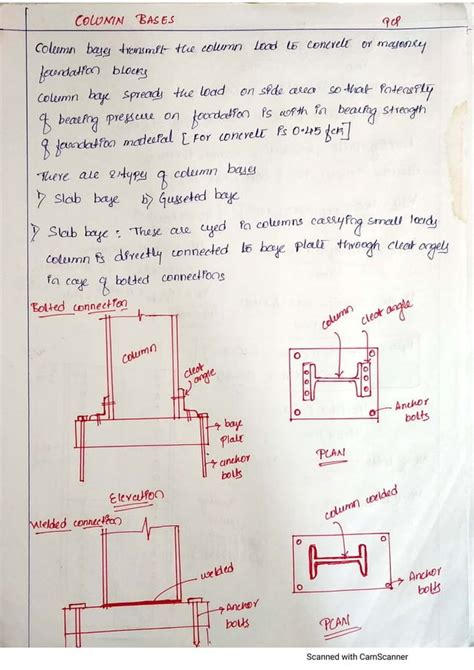 COLUMN BASES
Column bases transmit the column load to concrete or masonry
foundation blocks
Column base spreads the load on side area so that intensity
of bearing pressure on foundation is with in bearing strength
of foundation material [For concrete is 0.45 fck]
There are 2 types of column bases
Slab base b) Gusseted base
Slab base : These are used in columns carrying small loads
column is directly connected to base plate through cleat angels
in case of bolted connections
Bolted connection
column
cleat
angle
base
plate
anchor
bolts
Elevation
column
cleat angle
Anchor
bolts
PLAN
Welded connection
welded
Anchor
bolts
column welded
Anchor
bolts
PLAN
Scanned with CamScanner